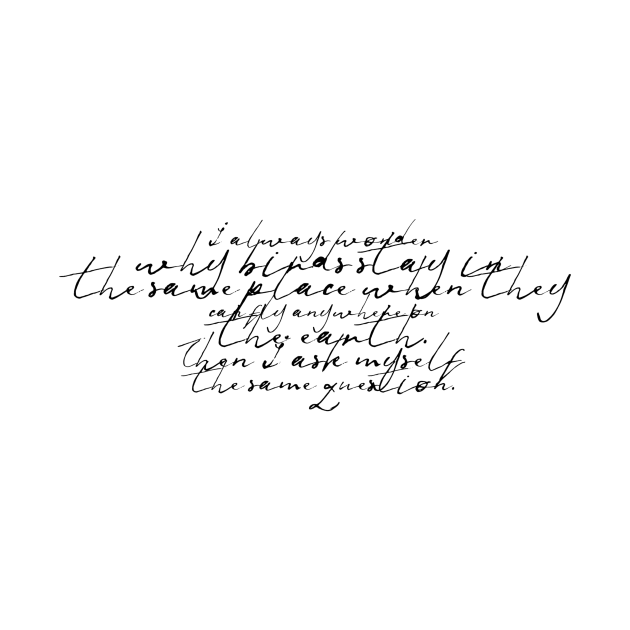 I always wonder
why birds stay in
the same place when they
can fly anywhere on
the earth.
Then I ask myself
the same question.